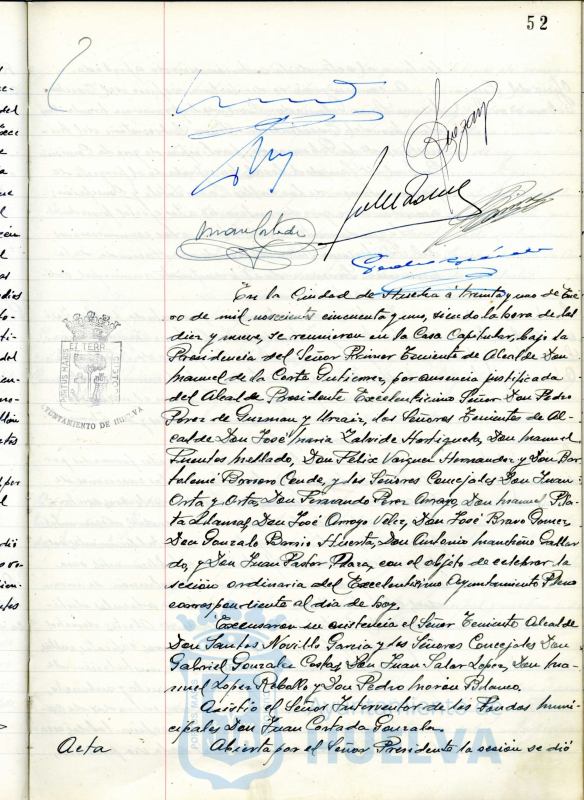 52
En la Ciudad de Huelva á treinta y uno de Ene-
ro de mil novecientos cincuenta y uno, siendo la hora de las
diez y nueve, se reunieron en la Casa Capitular, bajo la
Presidencia del Señor Primer Teniente de Alcalde Don
Manuel de la Corte Gutierrez, por ausencia justificada
del Alcalde Presidente Excelentisimo Señor Don Pedro
Perez de Guzman y Urzaiz, los Señores Tenientes de Al-
calde Don José Maria Zalvide Hortiguela, Don Manuel
Fuentes Mellado, Don Félix Vazquez Hernandez y Don Bar-
tolomé Borrero Conde, y los Señores Concejales Don Juan
Orta y Orta, Don Fernando Perez Arroyo, Don Manuel Pla-
ta Don José Arroyo Vélez, Don José Bravo Gomez,
Don Gonzalo Barrio Huerta, Don Antonio Mancheño Gallar-
do, y Don Juan Pastor Plaza, con el objeto de celebrar la
sesión ordinaria del Excelentisimo Ayuntamiento Pleno
correspondiente al dia de hoy.
Excusaron su asistencia el Señor Teniente Alcalde
Don Santos Novillo Garcia y los Señores Concejales Don
Gabriel Gonzalez Don Juan Salar Lopez, Don Ma-
nuel Lopez Raballo y Don Pedro Morón Blanco.
Asistio el Señor Interventor de los Fondos Muni-
cipales Don Juan Cortada Gonzalez.
Acta Abierta por el Señor Presidente la sesión se dió
PORTUS MARIS
ET TERRAE
CUSTODIA
AYUNTAMIENTO DE HUELVA
Ayuntamiento de
HUELVA